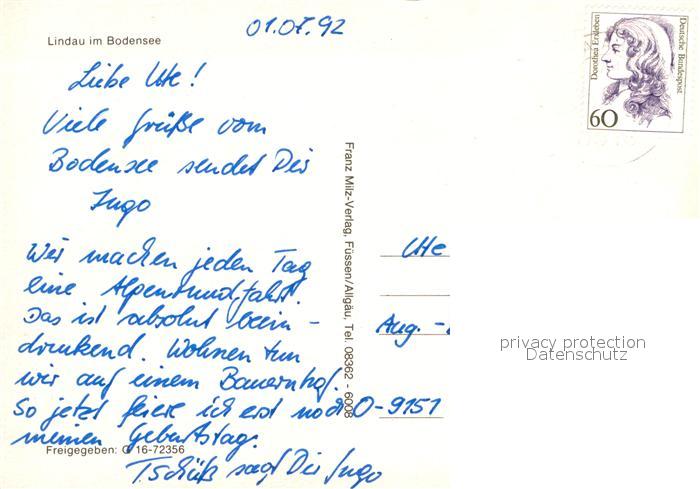 Lindau im Bodensee
01.07.92
Liebe Ute!
Viele Grüße vom
Bodensee sendet Dir
Ingo
Wir machen jeden Tag
eine Alpenrundfahrt.
Das ist absolut beein-
druckend. Wohnen tun
wir auf einem Bauernhof.
So jetzt feiere ich erst noch
meinen Geburtstag.
Tschüß sagt Dir Ingo
Freigegeben: G 16-72356
Franz Milz-Verlag, Füssen/Allgäu, Tel. 08362 - 6008
Dorothea Erxleben
Deutsche Bundespost
60
Ute
Aug. -
O-9151
privacy protection
Datenschutz